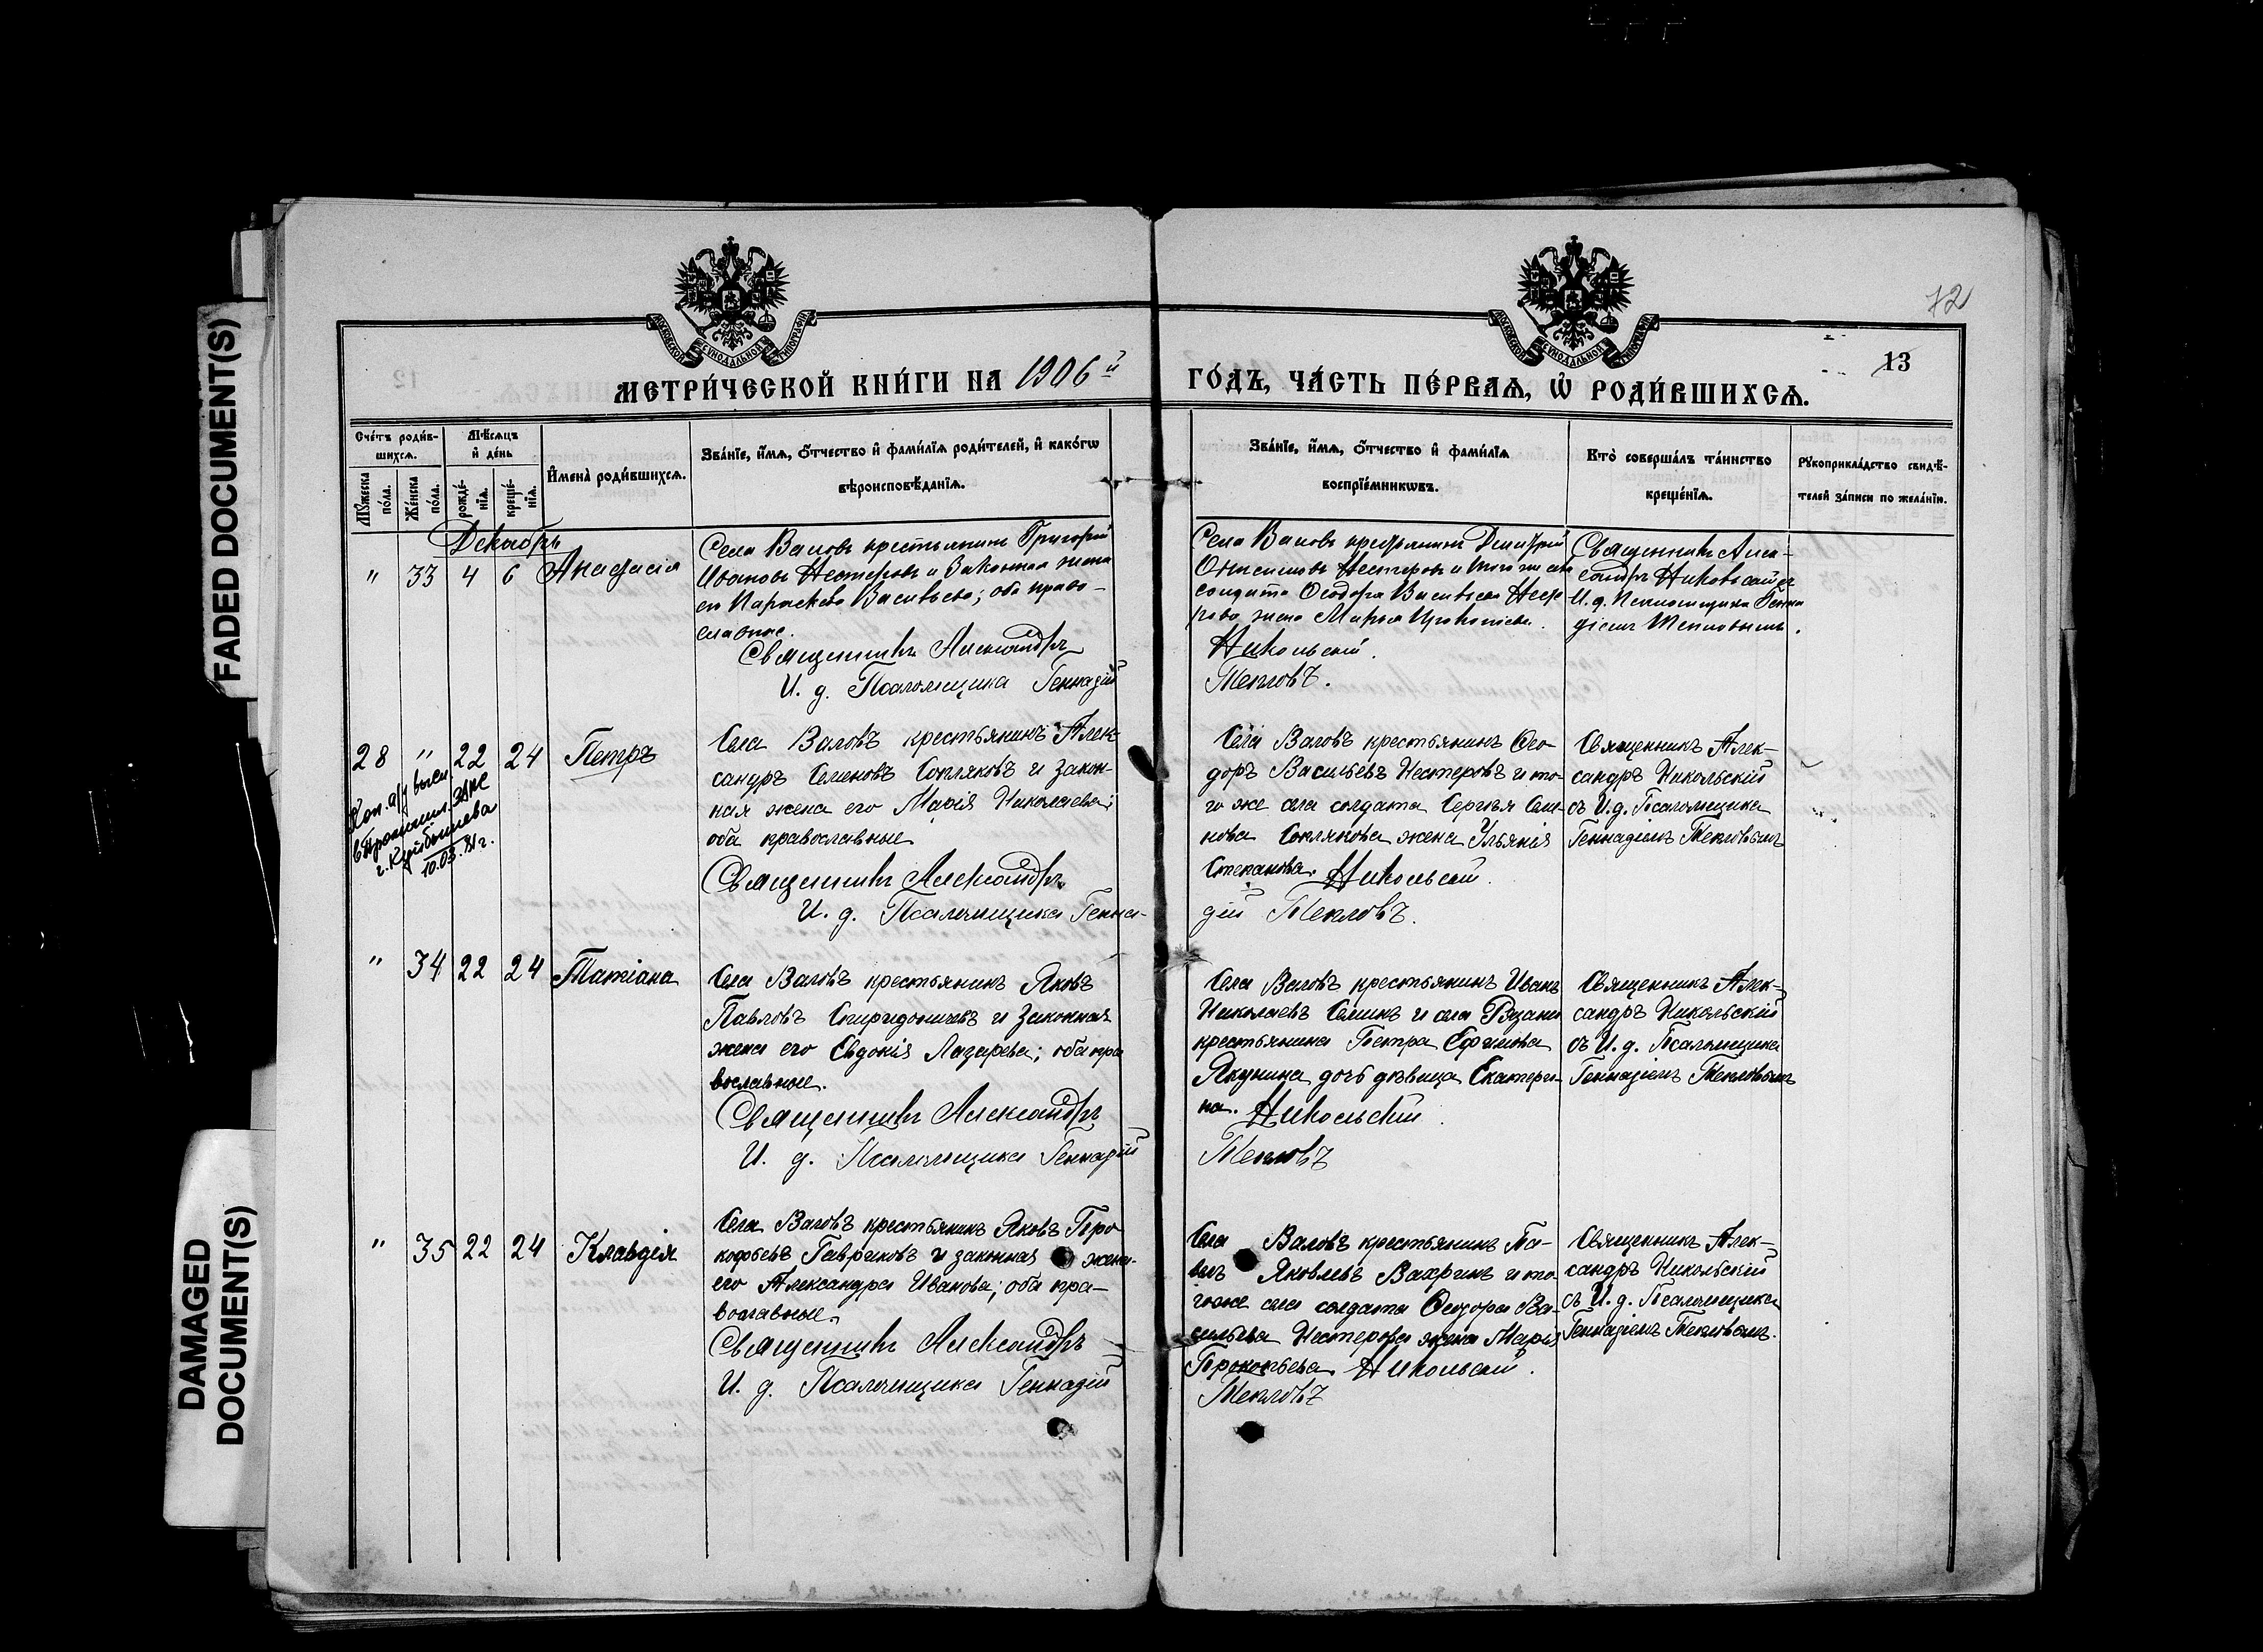 72
13
МОСКОВСКОЙ СѴНОДАЛЬНОЙ ТИПОГРАФІИ
МОСКОВСКОЙ СѴНОДАЛЬНОЙ ТИПОГРАФІИ
МЕТРИ́ЧЕСКОЙ КНИ́ГИ НА 1906й
ГО́ДЪ, ЧА́СТЬ ПЕ́РВАѦ, Ѡ РОДИ́ВШИХСѦ.
Сче́тъ роди́в-
шихсѧ.
Мꙋ́жеска по́ла.
Же́нска по́ла.
Мѣ́сѧцъ
и҆ де́нь
рожде́-нїѧ.
креще́-нїѧ.
И҆мена̀ роди́вшихсѧ.
Зва́нїе, и҆́мѧ, о҆́тчество и҆ фами́лїѧ роди́телей, и҆ како́гѡ
вѣроисповѣ́данїѧ.
Зва́нїе, и҆́мѧ, о҆́тчество и҆ фами́лїѧ
воспрїе́мникѡвъ.
Кто̀ соверша́лъ та́инство
креще́нїѧ.
Рꙋкоприкла́дство свидѣ́-
телей за́писи по жела́нїю.
Декабрь
" 33 4 6 Анастасія
Села Валовъ крестьянинъ Григорій
Ивановъ Нестеровъ и законная жена
его Параскева Васильева; оба право-
славные.
Священникъ Александръ
И. д. Псаломщика Геннадій
Села Валовъ крестьянинъ Димитрій
Онисимовъ Нестеровъ и того же села
солдата Ѳеодора Васильева Несте
рова жена Марья Прокопіева.
Никольскій.
Тепловъ.
Священникъ Алек-
сандръ Никольскій съ
И. д. Псаломщика Генна
діемъ Тепловымъ.
28 " 22 24 Петръ
10.03.
Села Валовъ крестьянинъ Алек
сандръ Семеновъ Сопляковъ и закон-
ная жена его Марія Николаева;
оба православные
Священникъ Александръ
И. д. Псаломщика Генна-
Села Валовъ крестьянинъ Ѳео-
доръ Васильевъ Нестеровъ и то-
го же села солдата Сергѣя Семе
нова Соплякова жена Ульянія
Степанова. Никольскій.
дій Тепловъ.
Священникъ Алек-
сандръ Никольскій
съ И. д. Псаломщика
Геннадіемъ Тепловымъ
" 34 22 24 Татіана
Села Валовъ крестьянинъ Яковъ
Павловъ Спиридоничевъ и законная
жена его Евдокія Лазарева; оба пра
вославные.
Священникъ Александръ
И. д. Псаломщика Геннадій
Села Валовъ крестьянинъ Иванъ
Николаевъ Семинъ и села Рязани
крестьянина Петра Ефимова
Якунина дочь дѣвица Екатери-
на. Никольскій
Тепловъ
Священникъ Алек-
сандръ Никольскій
съ И. д. Псаломщика
Геннадіемъ Тепловымъ
" 35 22 24 Клавдія
Села Валовъ крестьянинъ Яковъ Про
кофьевъ Гавриковъ и законная жена
его Александра Иванова; оба пра-
вославные.
Священникъ Александръ
И. д. Псаломщика Геннадій
Села Валовъ крестьянинъ Па-
велъ Яковлевъ Вахринъ и то-
гоже села солдата Ѳеодора Ва-
сильева Нестерова жена Марія
Прокопьева Никольскій.
Тепловъ
Священникъ Алек-
сандръ Никольскій
съ И. д. Псаломщика
Геннадіемъ Тепловымъ.
FADED DOCUMENT(S)
DAMAGED
DOCUMENT(S)